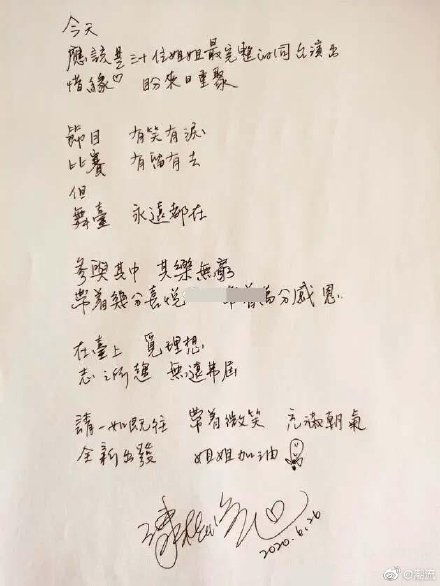 今天
應該是三十位姐姐最完整的同台演出
惜緣♡ 盼來日重聚
節目 有笑有淚
比賽 有留有去
但
舞臺 永遠都在
參與其中 其樂無窮
帶着幾分喜悅 帶着萬分感恩
在臺上 覓理想
志之所趨 無遠弗屆
請一如既往 帶着微笑 充滿朝氣
全新出發 姐姐加油
2020.6.26
@潮流